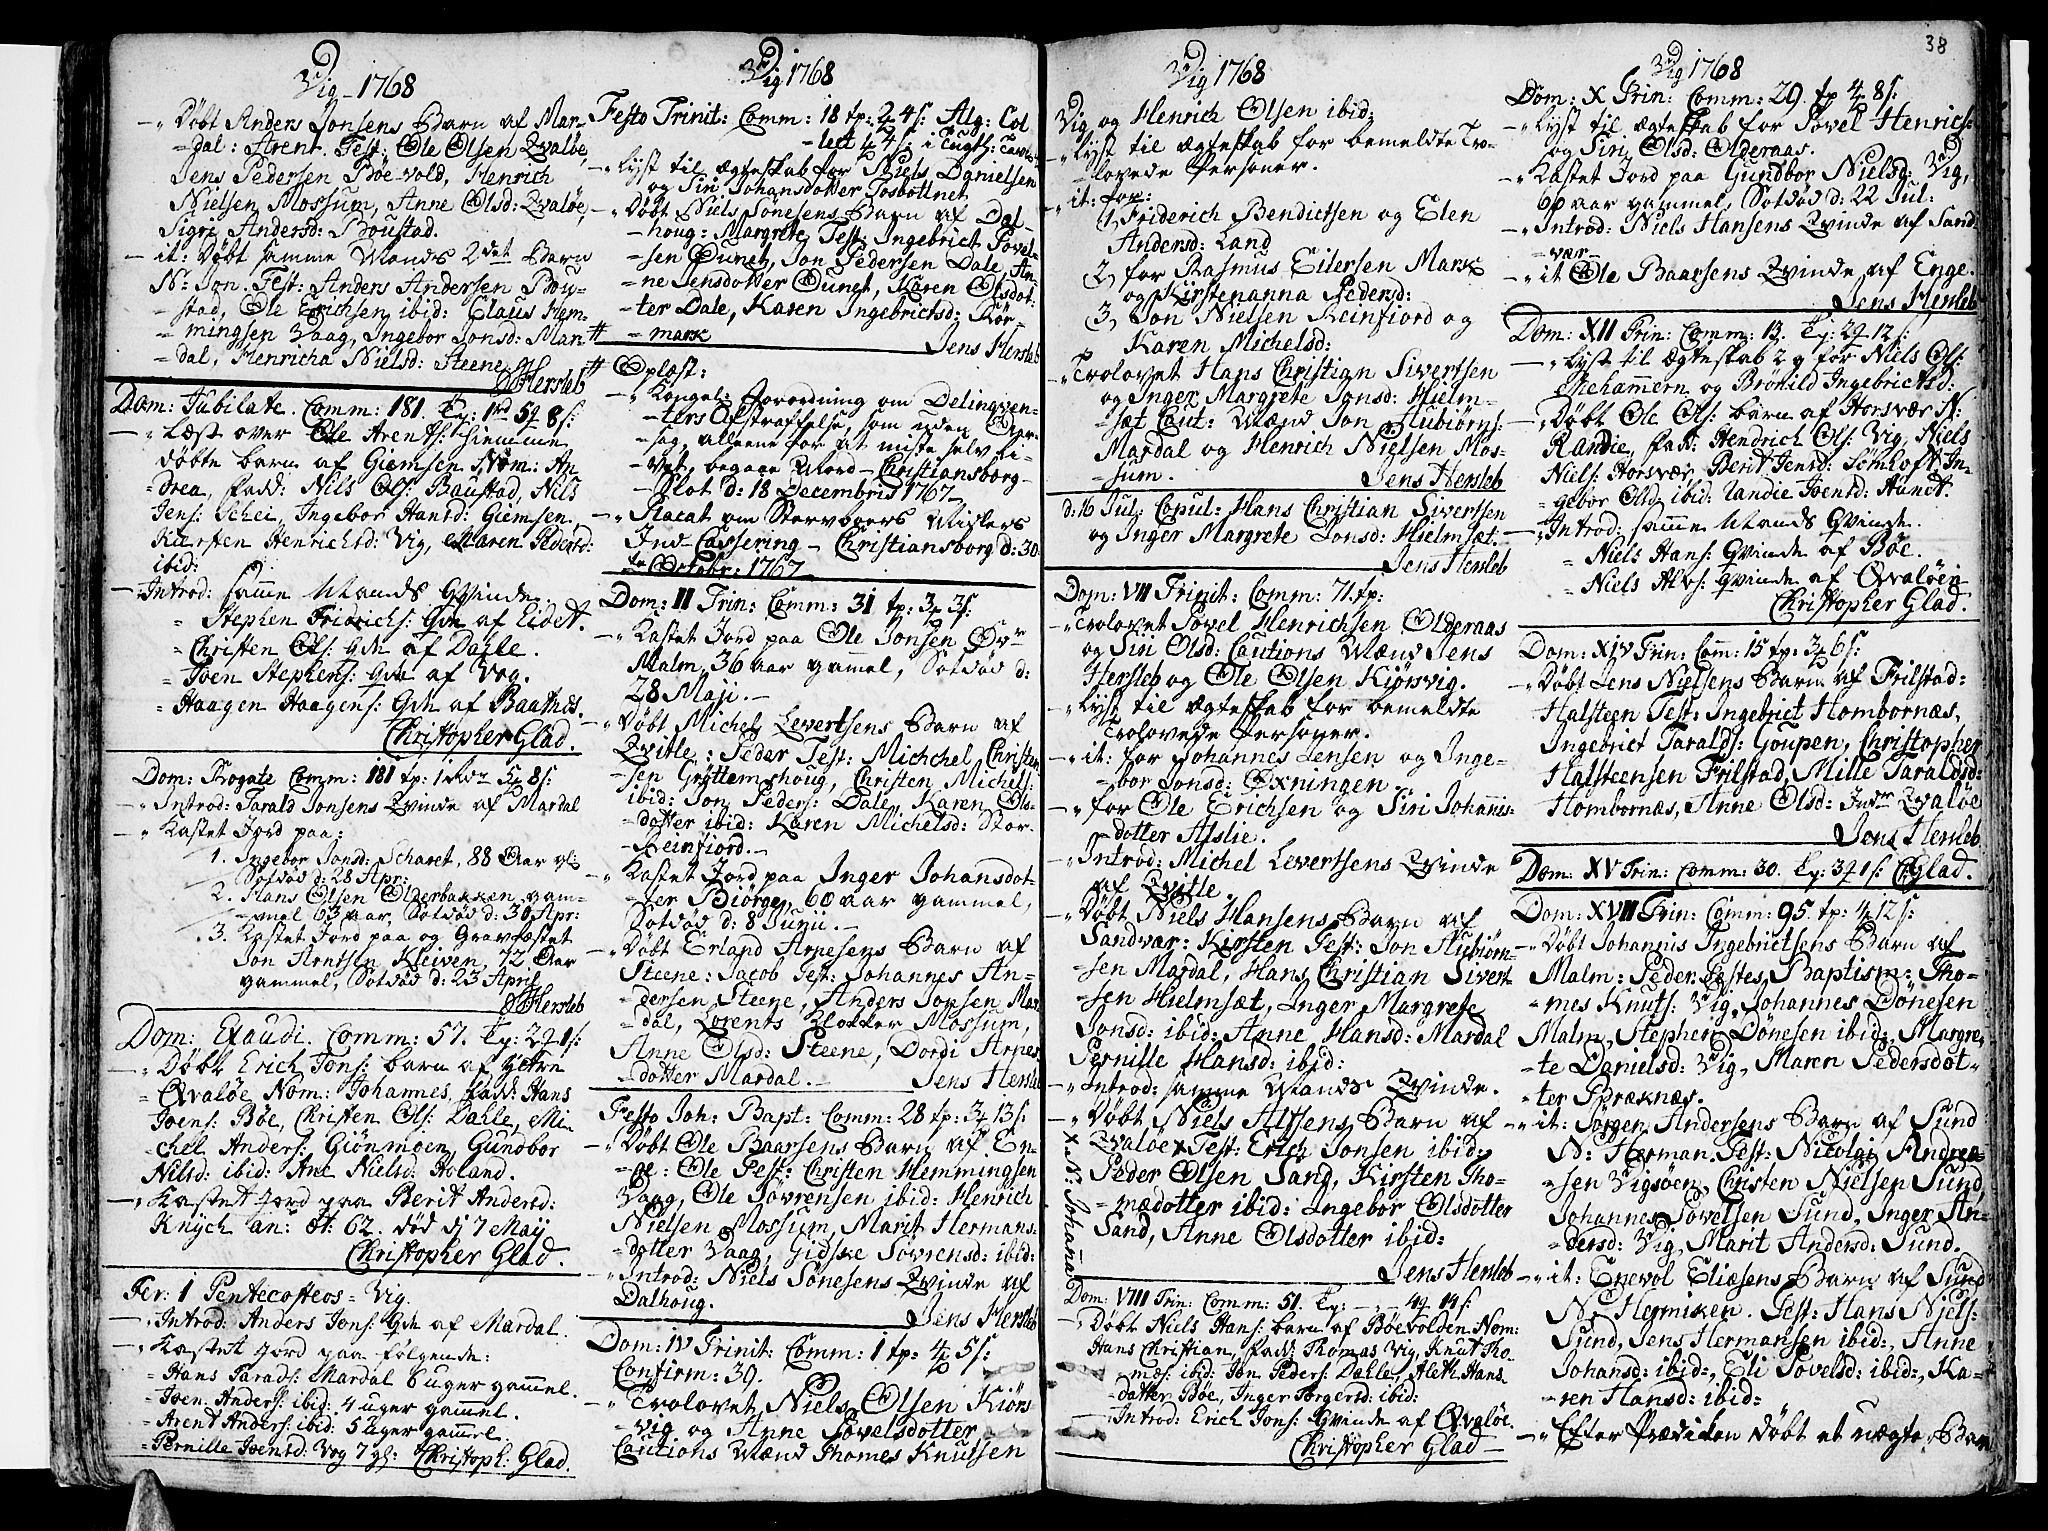 Vig 1768
Døbt Anders Jonsens Barn af Mar-
dal: Arent. Test: Ole Olsen Qvaløe,
Jens Pedersen Böe-vold, Henrich
Nielsen Mossum, Anne Olsd: Qvaløe,
Sigri Andersd: Boustad.
it: Døbt samme Mands 2det Barn
N: Jon. Test: Anders Andersen Bou-
stad, Ole Erichsen ibid: Claus Hem-
mingsen Vaag, Ingebor Jonsd: Mar-
dal, Henricha Nielsd: Steene
J Hersleb
Dom: Jubilate. Comm: 181.
Læst over Ole Arents: hiemme
døbte barn af Giemsen, Nom: An-
drea, fadd: Nils Ols: Baustad, Nils
Jens: Schei, Ingebor Hansd: Giemsen,
Kiersten Henrichsd: Vig, Maren Pedersd:
ibid:
Introd: samme Mands Qvinde.
Stephen Fridrichs: Qvn af Eidet.
Christen Ols: Qvn af Dahle.
Joen Stephens: Qvn af Vog.
Haagen Haagens: Qvn af Baasnes.
Christopher Glad.
Dom: Rogate Comm: 181
Introd: Tarald Jonsens Qvinde af Mardal
Kastet Jord paa:
1. Ingebor Jonsd: Scharet, 88 Aar gl:
Sotdød d: 28 Apr:
2. Hans Olsen Olderbakken, gam-
mel 63 aar, Sotdød d: 30 Apr:
3. Kastet Jord paa og Gravfæstet
Jon Arntsen Kleiven, 72 Aar
gammel, Sotdød d: 23 April
J Hersleb
Dom: Exaudi. Comm: 57.
Døbt Erich Jons: barn af Yttre
Qvaløe, Nom: Johannes, fadd: Hans
Joens: Bøe, Christen Ols: Dahle, Mi-
chel Anders: Giönmoen, Gundbor
Nilsd: ibid: Ane Nielsd: Holand.
Kastet Jord paa Berit Andersd:
Knych an: æt: 62. død d: 7 Maij
Christopher Glad.
Fer: 1 Pentecostes Vig.
Introd: Anders Jons: Qvn af Mardal.
Kastet Jord paa følgende:
Hans Tarads: Mardal 6 uger gammel.
Joen Anders: ibid: 4 uger gammel.
Arent Anders: ibid: 5 uger gammel.
Pernille Joensd: Vog 7 gl: Christoph: Glad.
Vig 1768
Festo Trinit: Comm: 18 Alg: Col
lect i Tugth:
Lyst til ægteskab for Niels Danielsen
og Siri Johansdotter Fosbotnet,
Døbt Niels Sönesens Barn af Dal-
houg: Margrete, Test: Ingebrict Povel-
sen Ounet, Jon Pedersen Dale, An-
ne Jensdotter Ounet, Karen Olsdot:
ter Dale, Karen Ingebrictsd: Rör-
mark
Jens Hersleb
Oplæst:
Kongel: Forordning om Delinqven-
ters Afstraffelse, som uden Aar-
sag, alleene for at miste selv Li-
vet, begaae Mord Christiansborg
Slot d: 18 Decembris 1767
Placat om Stervboers Midlers
Ind-Cassering Christiansborg d: 30
te Octobr: 1767
Dom: II Trin: Comm: 31
Kastet Jord paa Ole Jonsen Øvr
Malm, 36 aar gamel, Sotdød d:
28 Maji.
Døbt Michel Levertsens Barn af
Qvitle: Peder Test: Michchel Christen
sen Gröttemshoug, Christen Michels:
ibid: Jon Peders: Dale, Karen Ols-
dotter ibid: Karen Michelsd: Stor-
Reinfiord.
Kastet Jord paa Inger Johansdot-
ter Biörge, 60 aar gammel,
Sotdød d: 8 Junii.
Døbt Erland Arnesens Barn af
Steene: Jacob Test: Johannes An-
dersen Steene, Anders Jonsen Mar
dal, Lorents Klokker Mossum,
Anne Olsd: Steene, Dordi Arnes
dotter Mardal.
Jens Hersleb
Festo Joh: Bapt: Comm: 28
Døbt Ole Baarsens Barn af En-
ge: Ole Test: Christen Hemmingsen
Vaag, Ole Sövrensen ibid: Henrich
Nielsen Mossum, Marit Hermans:
dotter Vaag, Gidske Sövrensd: ibid:
Introd: Niels Sönesens Qvinde af
Dalhoug.
Jens Hersleb
Dom: IV Trinit: Comm: 1
Confirm: 39.
Trolovet, Niels Olsen Kiörs
vig og Anne Povelsdotter
Cautions Mænd Thomes Knutsen
Vig 1768
Vig og Henrich Olsen ibid:
Lyst til ægteskab for bemeldte Tro-
lovede Personer.
it: for:
1, Friderich Bendictsen og Elen
Andersd: Land
2, for Rasmus Eilersen Mark
og Kirstenanna Pedersd:
3, Jon Nielsen Reinfiord og
Karen Michelsd:
Trolovet Hans Christian Sivertsen
og Inger Margrete Jonsd: Hielm-
sæt Caut: Mænd Jon Aubiörns:
Mardal og Henrich Nielsen Mos-
sum.
Jens Hersleb
d: 16 Jul: Copul: Hans Christian Sivertsen
og Inger Margrete Jonsd: Hielmsæt.
Jens Hersleb
Dom: VII Trinit: Comm: 71. tp:
Trolovet Povel Henrichsen Olderaas
og Siri Olsd: Cautions Mænd Jens
Hersleb og Ole Olsen Kiörsvig.
Lyst til ægteskab for bemeldte
Trolovede Personer.
it: for Johannes Jensen og Inge-
bor Jonsd: Øxningen
for Ole Erichsen og Siri Johannis-
dotter Aslie.
Introd: Michel Levertsens Qvinde
af Qvitle
Døbt Niels Hansens Barn af
Sandvær: Kirsten Test: Jon Aubiörn-
sen Mardal, Hans Christian Sivert-
sen Hielmsæt, Inger Margrete
Jonsd: ibid: Anne Hansd: Mardal
Pernille Hansd: ibid:
Introd: samme Mands Qvinde.
Døbt Niels Alfsens Barn af
Qvaløe x Test: Erich Jonsen ibid:
Peder Olsen Sand, Kirsten Tho-
mædotter ibid: Ingebor Olsdotter
Sand, Anne Olsdotter ibid:
x N: Johana
Jens Hersleb
Dom: VIII Trin: Comm: 51.
Døbt Niels Hans: barn af Böevolden Nom:
Hans Christian, fadd: Thomas Vig, Knut Tho-
mæs: ibid: Jon Peders: Dahle, Aleth Hans
datter Bøe, Inger Torgersd: ibid:
Introd: Erich Jons: Qvinde af Qvaløe.
Christopher Glad
38
Vig 1768
Dom: X Trin: Comm: 29.
Lyst til ægteskab for Povel Henrics:
og Siri Olsd: Olderaas.
Kastet Jord paa Gundbor Nielsd: Vig,
60 aar gammel, Sotdød d: 22 Jul:
Introd: Niels Hansens Qvinde af Sand-
vær
it Ole Baarsens Qvinde af Enge.
Jens Hersleb
Dom: XII Trin: Comm: 13.
Lyst til ægteskab 2 g for Niels Ols:
Chehammern og Brönild Ingebrictsd:
Døbt Ole Ols: barn af Horsvær N:
Randie, fadd: Hendrich Ols: Vig, Niels
Niels: Horsvær, Berit Jensd: Sömhoft, In-
gebor Olsd: ibid: Randie Joensd: Hundt.
Introd: samme Mands Qvinde.
Niels Hans: Qvinde af Bøe.
Niels Alvs: Qvinde af Qvaløen
Christopher Glad.
Dom: XIV Trin: Com: 15
Døbt Jens Nielsens Barn af Frilstad:
Halsteen Test: Ingebrict Hombornæs,
Ingebrict Taralds: Goupen, Christopher
Halsteensen Frilstad, Mille Taraldsd:
Hombornæs, Anne Olsd: Indr Qvaløe
Jens Hersleb
Dom: XV Trin: Comm: 30. C: Glad.
Dom: XVII Trin: Comm: 95.
Døbt Johannis Ingebrictsens Barn af
Malm: Peder. Testes Baptism: Tho-
mes Knuts: Vig, Johannes Dönesen
Malm, Stephen Dönesen ibid:, Margre-
te Danielsd: Vig, Maren Pedersdot-
ter Præknæs.
it: Jörgen Andersens Barn af Sund
N: Herman. Test: Nicolai Andrea-
sen Vigsøen, Christen Nielsen Sund,
Johannes Povelsen Sund, Inger An-
dersd: Vig, Marit Andersd: Sund.
it: Enevol Eliæsens Barn af Sund
N: Hemiken. Test: Hans Niels:
Sund, Jens Hermansen ibid:, Anne
Johansd: ibid:, Eli Povelsd: ibid:, Ka-
ren Hansd: ibid:
Efter Prædiken Døbt et uægte Barn